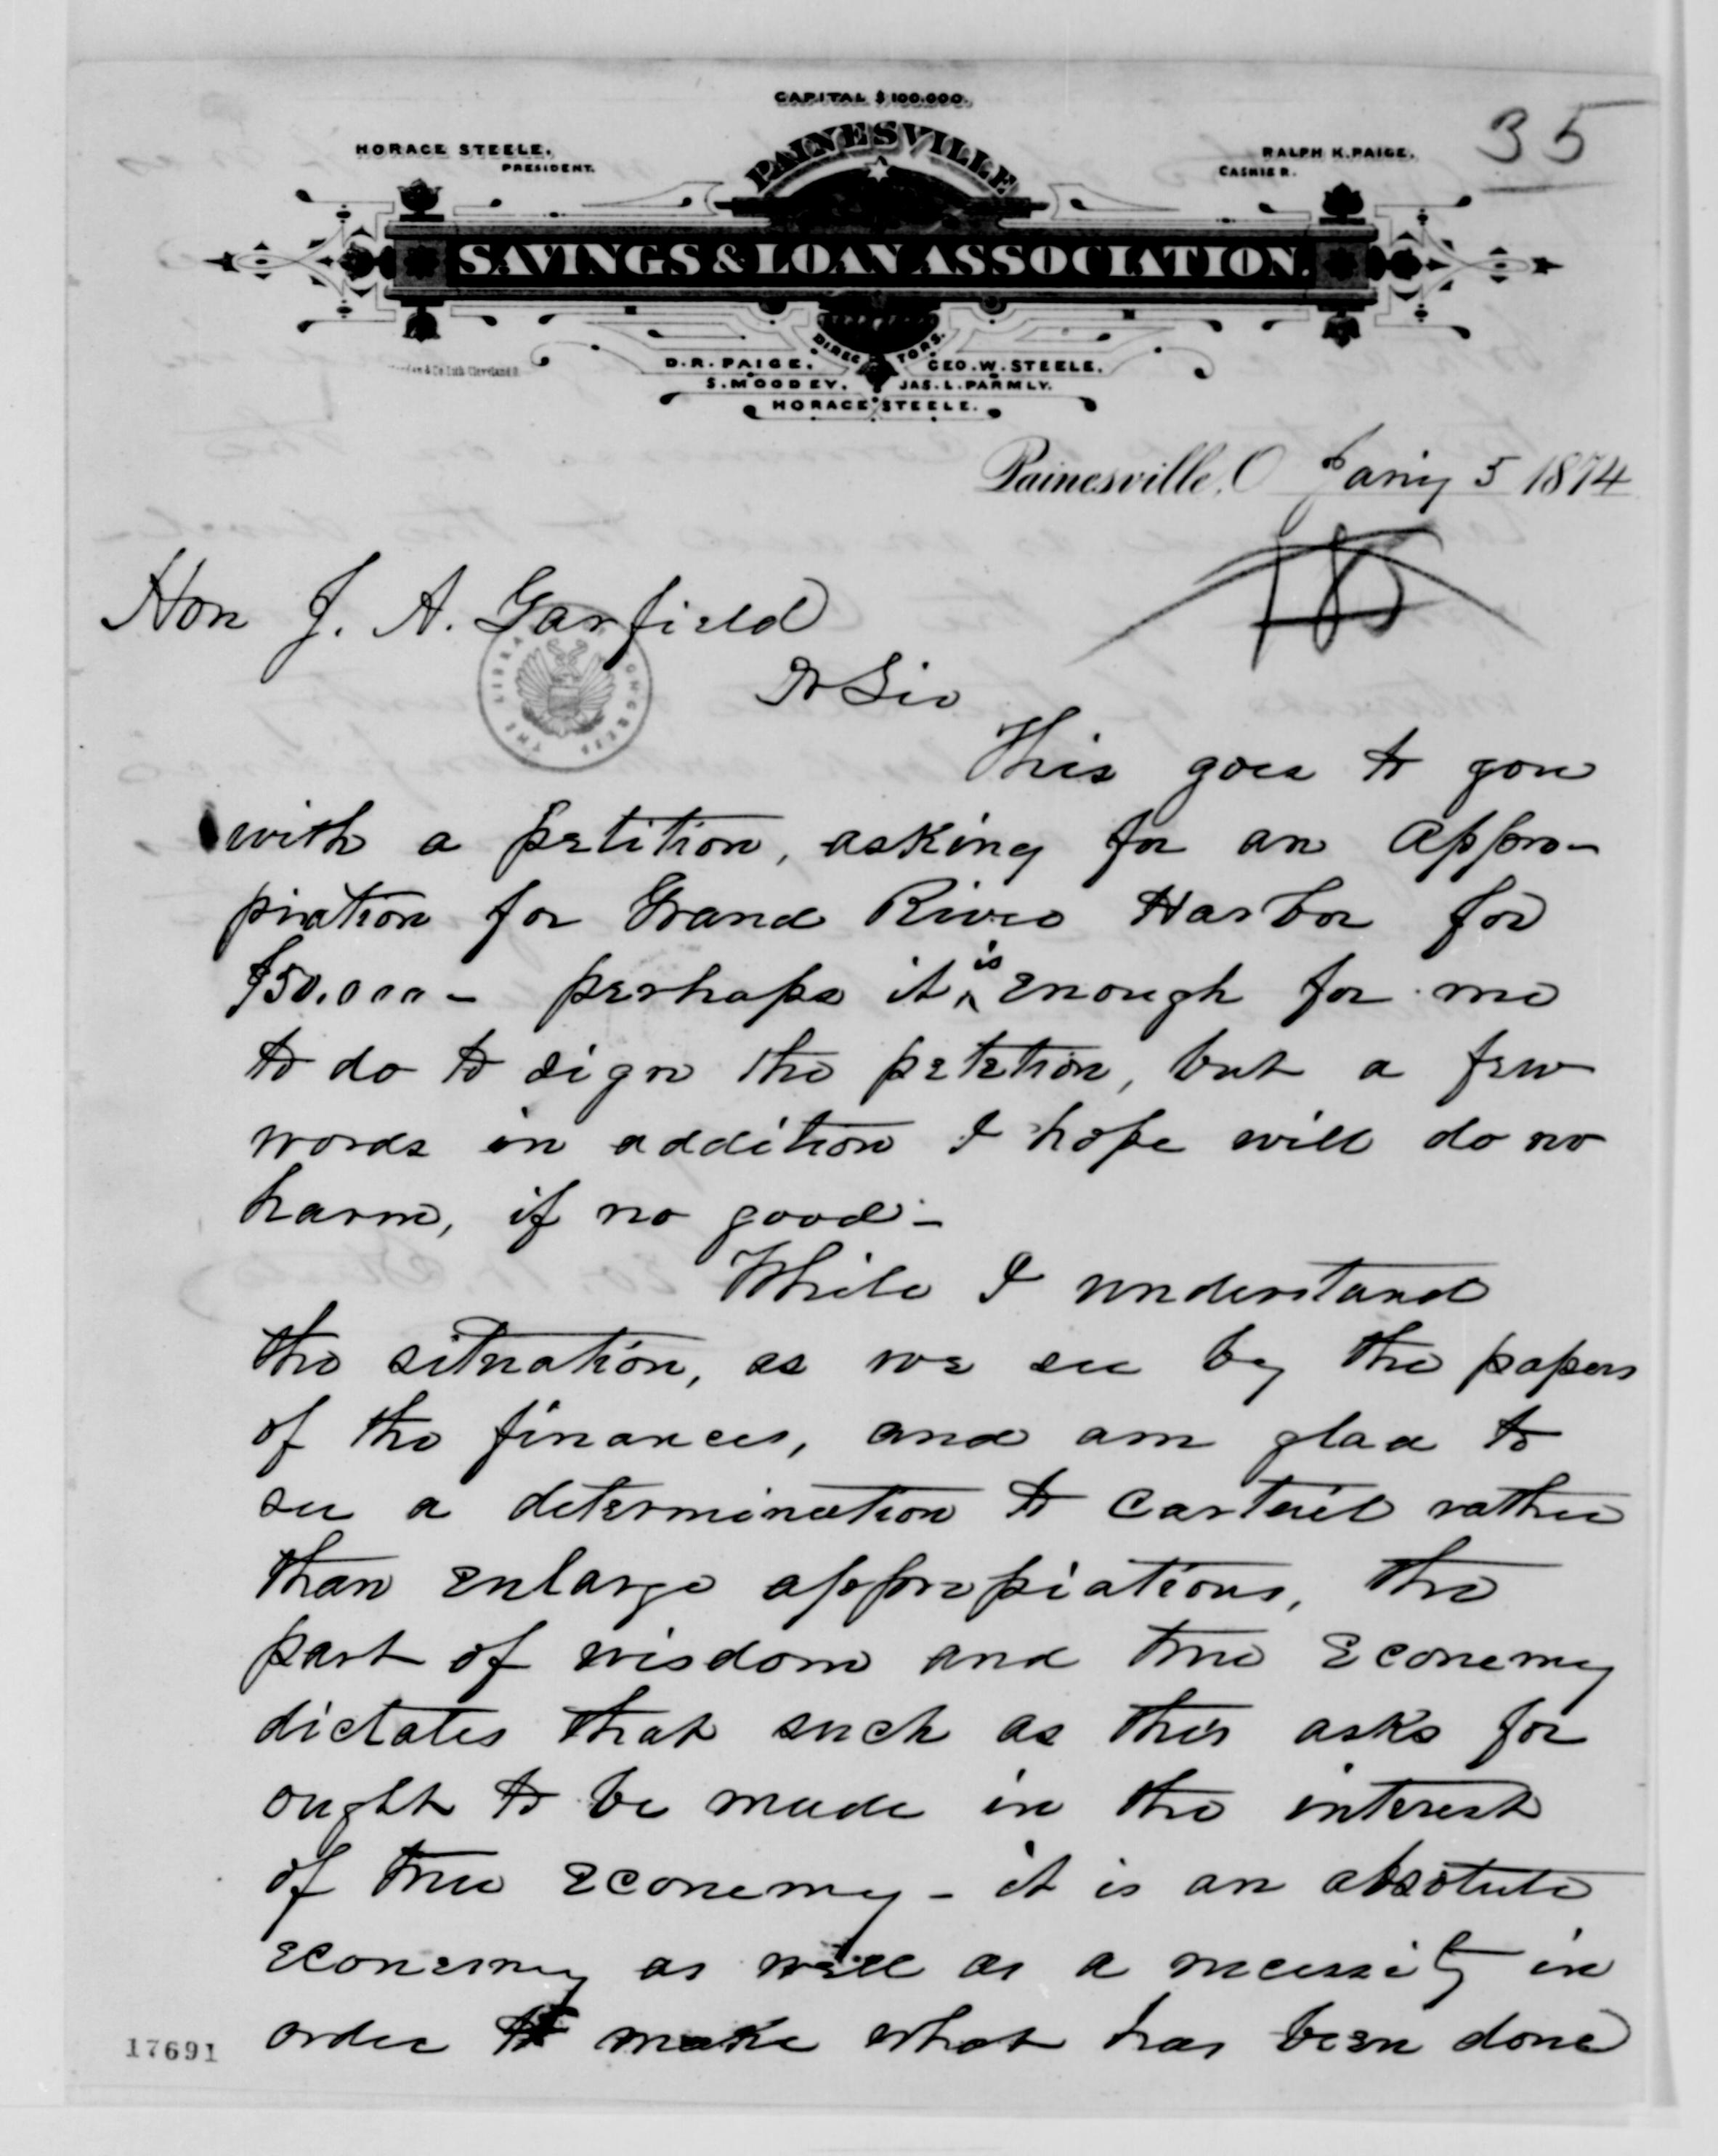 CAPITAL $100.000.
35
HORACE STEELE.
PRESIDENT.
RALPH K. PAIGE.
CASHIER.
PAINESVILLE
SAVINGS & LOAN ASSOCIATION.
DIRECTORS.
D.R. PAIGE. GEO. W. STEELE.
S. MOODEY. JAS. L. PARMLY.
HORACE STEELE.
& Co Lith Cleveland O.
Painesville, O Jany 5 1874
Hon J. A. Garfield
THE LIBRARY OF CONGRESS
Dr Sir
This goes to you
with a petition, asking for an appro-
piation for Grand River Harbor for
$50.000 - perhaps it is enough for me
to do to sign the petetion, but a few
words in addition I hope will do no
harm, if no good -
While I understand
the situation, as we see by the papers
of the finances, and am glad to
see a determination to cartail rather
than enlarge appropiations, the
part of wisdom and true Economy
dictates that such as this asks for
ought to be made in the interest
of true Economy - it is an absolute
Economy as well as a necessity in
order to make what has been done
17691